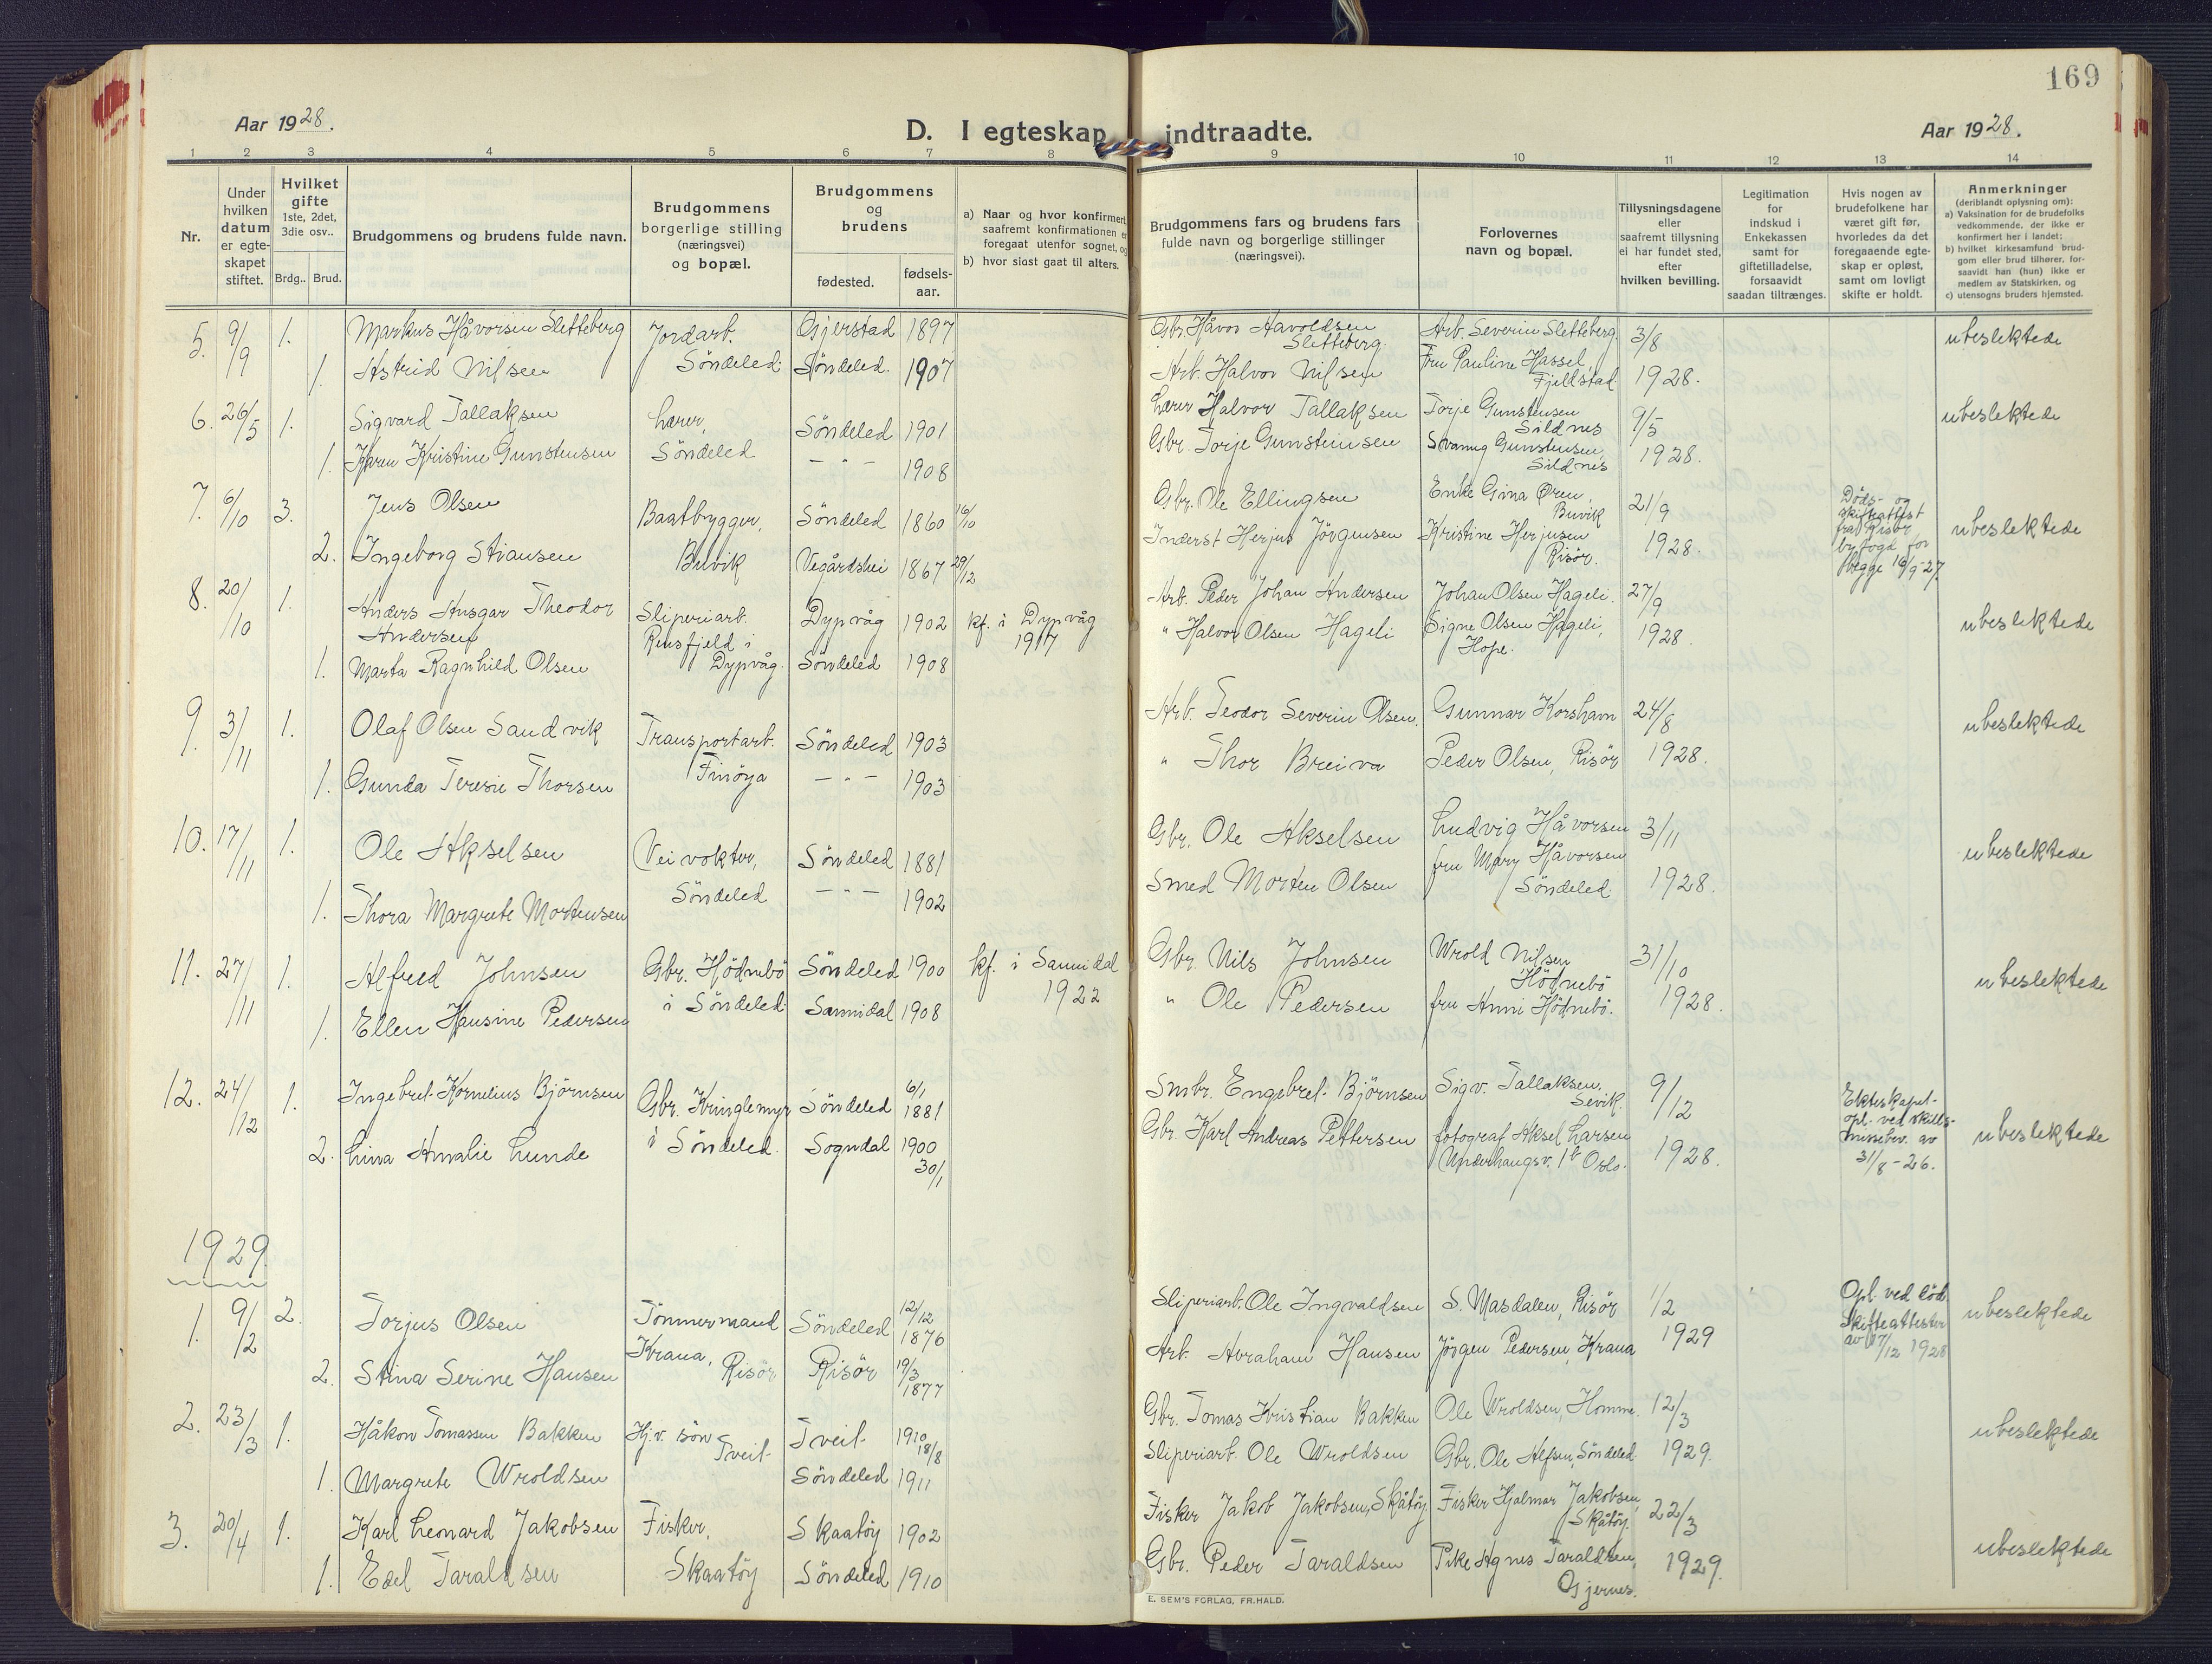 169
Aar 1928.
D. I egteskap indtraadte.
Aar 1928.
1 2 3 4 5 6 7 8 9 10 11 12 13 14
Nr.
Under hvilken datum er egteskapet stiftet.
Hvilket gifte
1ste, 2det, 3die osv..
Brdg.. Brud.
Brudgommens og brudens fulde navn.
Brudgommens borgerlige stilling (næringsvei) og bopæl.
Brudgommens og brudens
fødested.
fødselsaar.
a) Naar og hvor konfirmert,
saafremt konfirmationen er
foregaat utenfor sognet, og
b) hvor sidst gaat til alters.
Brudgommens fars og brudens fars
fulde navn og borgerlige stillinger
(næringsvei).
Forlovernes
navn og bopæl.
Tillysningsdagene
eller
saafremt tillysning
ei har fundet sted,
efter
hvilken bevilling.
Legitimation
for
indskud i
Enkekassen
samt for
giftetilladelse,
forsaavidt
saadan tiltrænges.
Hvis nogen av
brudefolkene har
været gift før,
hvorledes da det
foregaaende egteskap er opløst,
samt om lovligt
skifte er holdt.
Anmerkninger
(deriblandt oplysning om):
a) Vaksination for de brudefolks
vedkommende, der ikke er
konfirmert her i landet;
b) hvilket kirkesamfund brudgom eller brud tilhører, forsaavidt han (hun) ikke er
medlem av Statskirken, og
c) utensogns bruders hjemsted.
5. 9/9 1. Markus Håvorsen Sletteberg Jordarb. Gjerstad 1897 Gbr. Håvor Aavoldsen Sletteberg. Arb. Severin Sletteberg. 3/8 ubeslektede
1. Astrid Nilsen Söndeled. Söndeled. 1907 Arb. Halvor Nilsen Fru Pauline Hassel, Fjeldstad 1928.
6. 26/5 1. Sigvard Tallaksen Lærer, Söndeled 1901 Lærer Halvor Tallaksen Torje Gunstensen Sildnes 9/5 ubeslektede
1. Karen Kristine Gunstensen Söndeled — " — 1908 Gbr. Torje Gunsteinsen Svanug Gunstensen, Sildnes 1928.
7. 6/10 3. Jens Olsen Baatbygger, Söndeled 1860 16/10 Gbr. Ole Ellingsen Enke Gina Øren, Buvik 21/9 Døds- og skifteattest fra Risør byfogd for begge 16/9-27. ubeslektede
2. Ingeborg Stiansen Buvik Vegårdshei 1867 29/12 Inderst Herjus Jörgensen Kristine Herjusen Risör. 1928.
8. 20/10 1. Anders Ansgar Theodor Andersen Sliperiarb. Dypvåg 1902 kf. i Dypvåg 1917 Arb. Peder Johan Andersen Johan Olsen Hageli. 27/9 ubeslektede
1. Marta Ragnhild Olsen Rensfjeld i Dypvåg. Söndeled 1908 " Halvor Olsen Hageli Signe Olsen Hageli, Hope. 1928.
9. 3/11 1. Olaf Olsen Sandvik Transportarb. Söndeled 1903 Arb. Teodor Severin Olsen. Gunnar Korsham 24/8 ubeslektede
1. Gunda Teresie Thorsen Finöya — " — 1903 " Thor Breiva Peder Olsen, Risör 1928.
10. 17/11 1. Ole Akselsen Veivokter, Söndeled 1881 Gbr. Ole Akselsen Ludvig Håvorsen 3/11 ubeslektede
1. Thora Margrete Mortensen Söndeled — " — 1902 Smed Morten Olsen fru Mary Håvorsen Söndeled. 1928.
11. 27/11 1. Alfred Johnsen Gbr. Hödnebö Söndeled 1900 kf. i Sannidal 1922 Gbr. Nils Johnsen Wrold Nilsen Hödnebö 31/10 ubeslektede
1. Ellen Hansine Pedersen i Söndeled. Sannidal 1908 " Ole Pedersen fru Anni Hödnebö. 1928.
12. 24/12 1. Ingebret Kornelius Björnsen Gbr. Kringlemyr Söndeled 6/1 1881 Smbr. Engebret Björnsen Sigv. Tallaksen, Sevik. 9/12 Ekteskapet opl. ved skilsmissebev. av 31/8-26. ubeslektede
2. Lina Amalie Lunde i Söndeled. Sogndal 1900 30/1 Gbr. Karl Andreas Pettersen fotograf Aksel Larsen Underhaugsv. 1b Oslo. 1928.
1929.
1. 9/2 2. Torjus Olsen Tömmermand Söndeled 12/12 1876 Sliperiarb. Ole Ingvaldsen S. Masdalen, Risör 1/2 Opl. ved död Skifteattester av 17/12 1928 ubeslektede
2. Stina Serine Hansen Krana, Risör Risör 19/3 1877 Arb. Avraham Hansen Jörgen Pedersen, Krana 1929
2. 23/3 1. Håkon Tomassen Bakken Hj.v. sön Tveit Tveit 1910 18/8 Gbr. Tomas Kristian Bakken Ole Wroldsen, Homme. 12/3 ubeslektede
1. Margrete Wroldsen Söndeled 1911 Sliperiarb. Ole Wroldsen Gbr. Ole Alfsen, Söndeled. 1929.
3. 20/4 1. Karl Leonard Jakobsen Fisker, Skaatöy 1902 Fisker Jakob Jakobsen, Skåtöy Fisker Hjalmar Jakobsen, Skåtöy. 22/3 ubeslektede
1. Edel Taraldsen Skaatöy Söndeled 1910 Gbr. Peder Taraldsen Pike Agnes Taraldsen, Gjernes. 1929.
E. SEM'S FORLAG, FR.HALD.